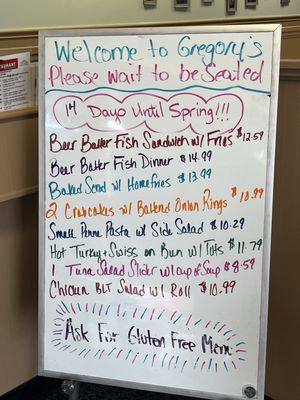 Welcome to Gregory's
Please wait to be Seated
14 Days Until Spring!!!
Beer Batter Fish Sandwich w/ Fries $12.59
Beer Batter Fish Dinner $14.99
Baked Scrod w/ Homefries $13.99
2 Crabcakes w/ Battered Onion Rings $10.99
Small Penne Pasta w/ Side Salad $10.29
Hot Turkey + Swiss on Bun w/ Tots $11.79
1 Tuna Salad Slider w/ cup of Soup $8.59
Chicken BLT Salad w/ Roll $10.99
Ask For Gluten Free Menu